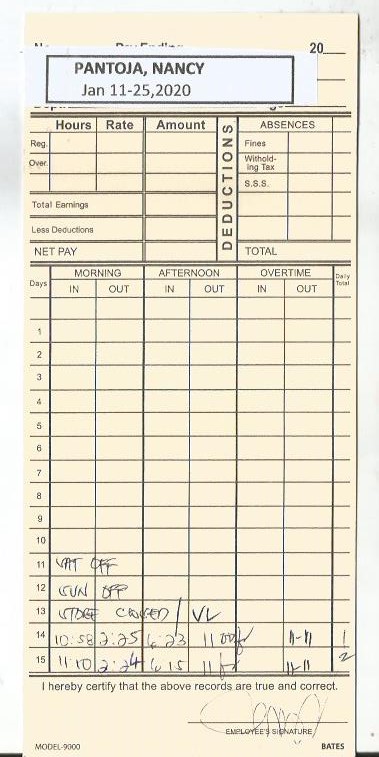 20
PANTOJA, NANCY
Jan 11-25,2020
Hours Rate Amount DEDUCTIONS ABSENCES
Reg. Fines
Over. Withold-
ing Tax
S.S.S.
Total Earnings
Less Deductions
NET PAY TOTAL
Days MORNING AFTERNOON OVERTIME Daily Total
IN OUT IN OUT IN OUT
1
2
3
4
5
6
7
8
9
10
11 SAT OFF
12 SUN OFF
13 STORE CLOSED / VL
14 10:58 2:25 6:23 11 11-11 1
15 11:10 2:24 6:15 11 11-11 2
I hereby certify that the above records are true and correct.
EMPLOYEE'S SIGNATURE
MODEL-9000 BATES